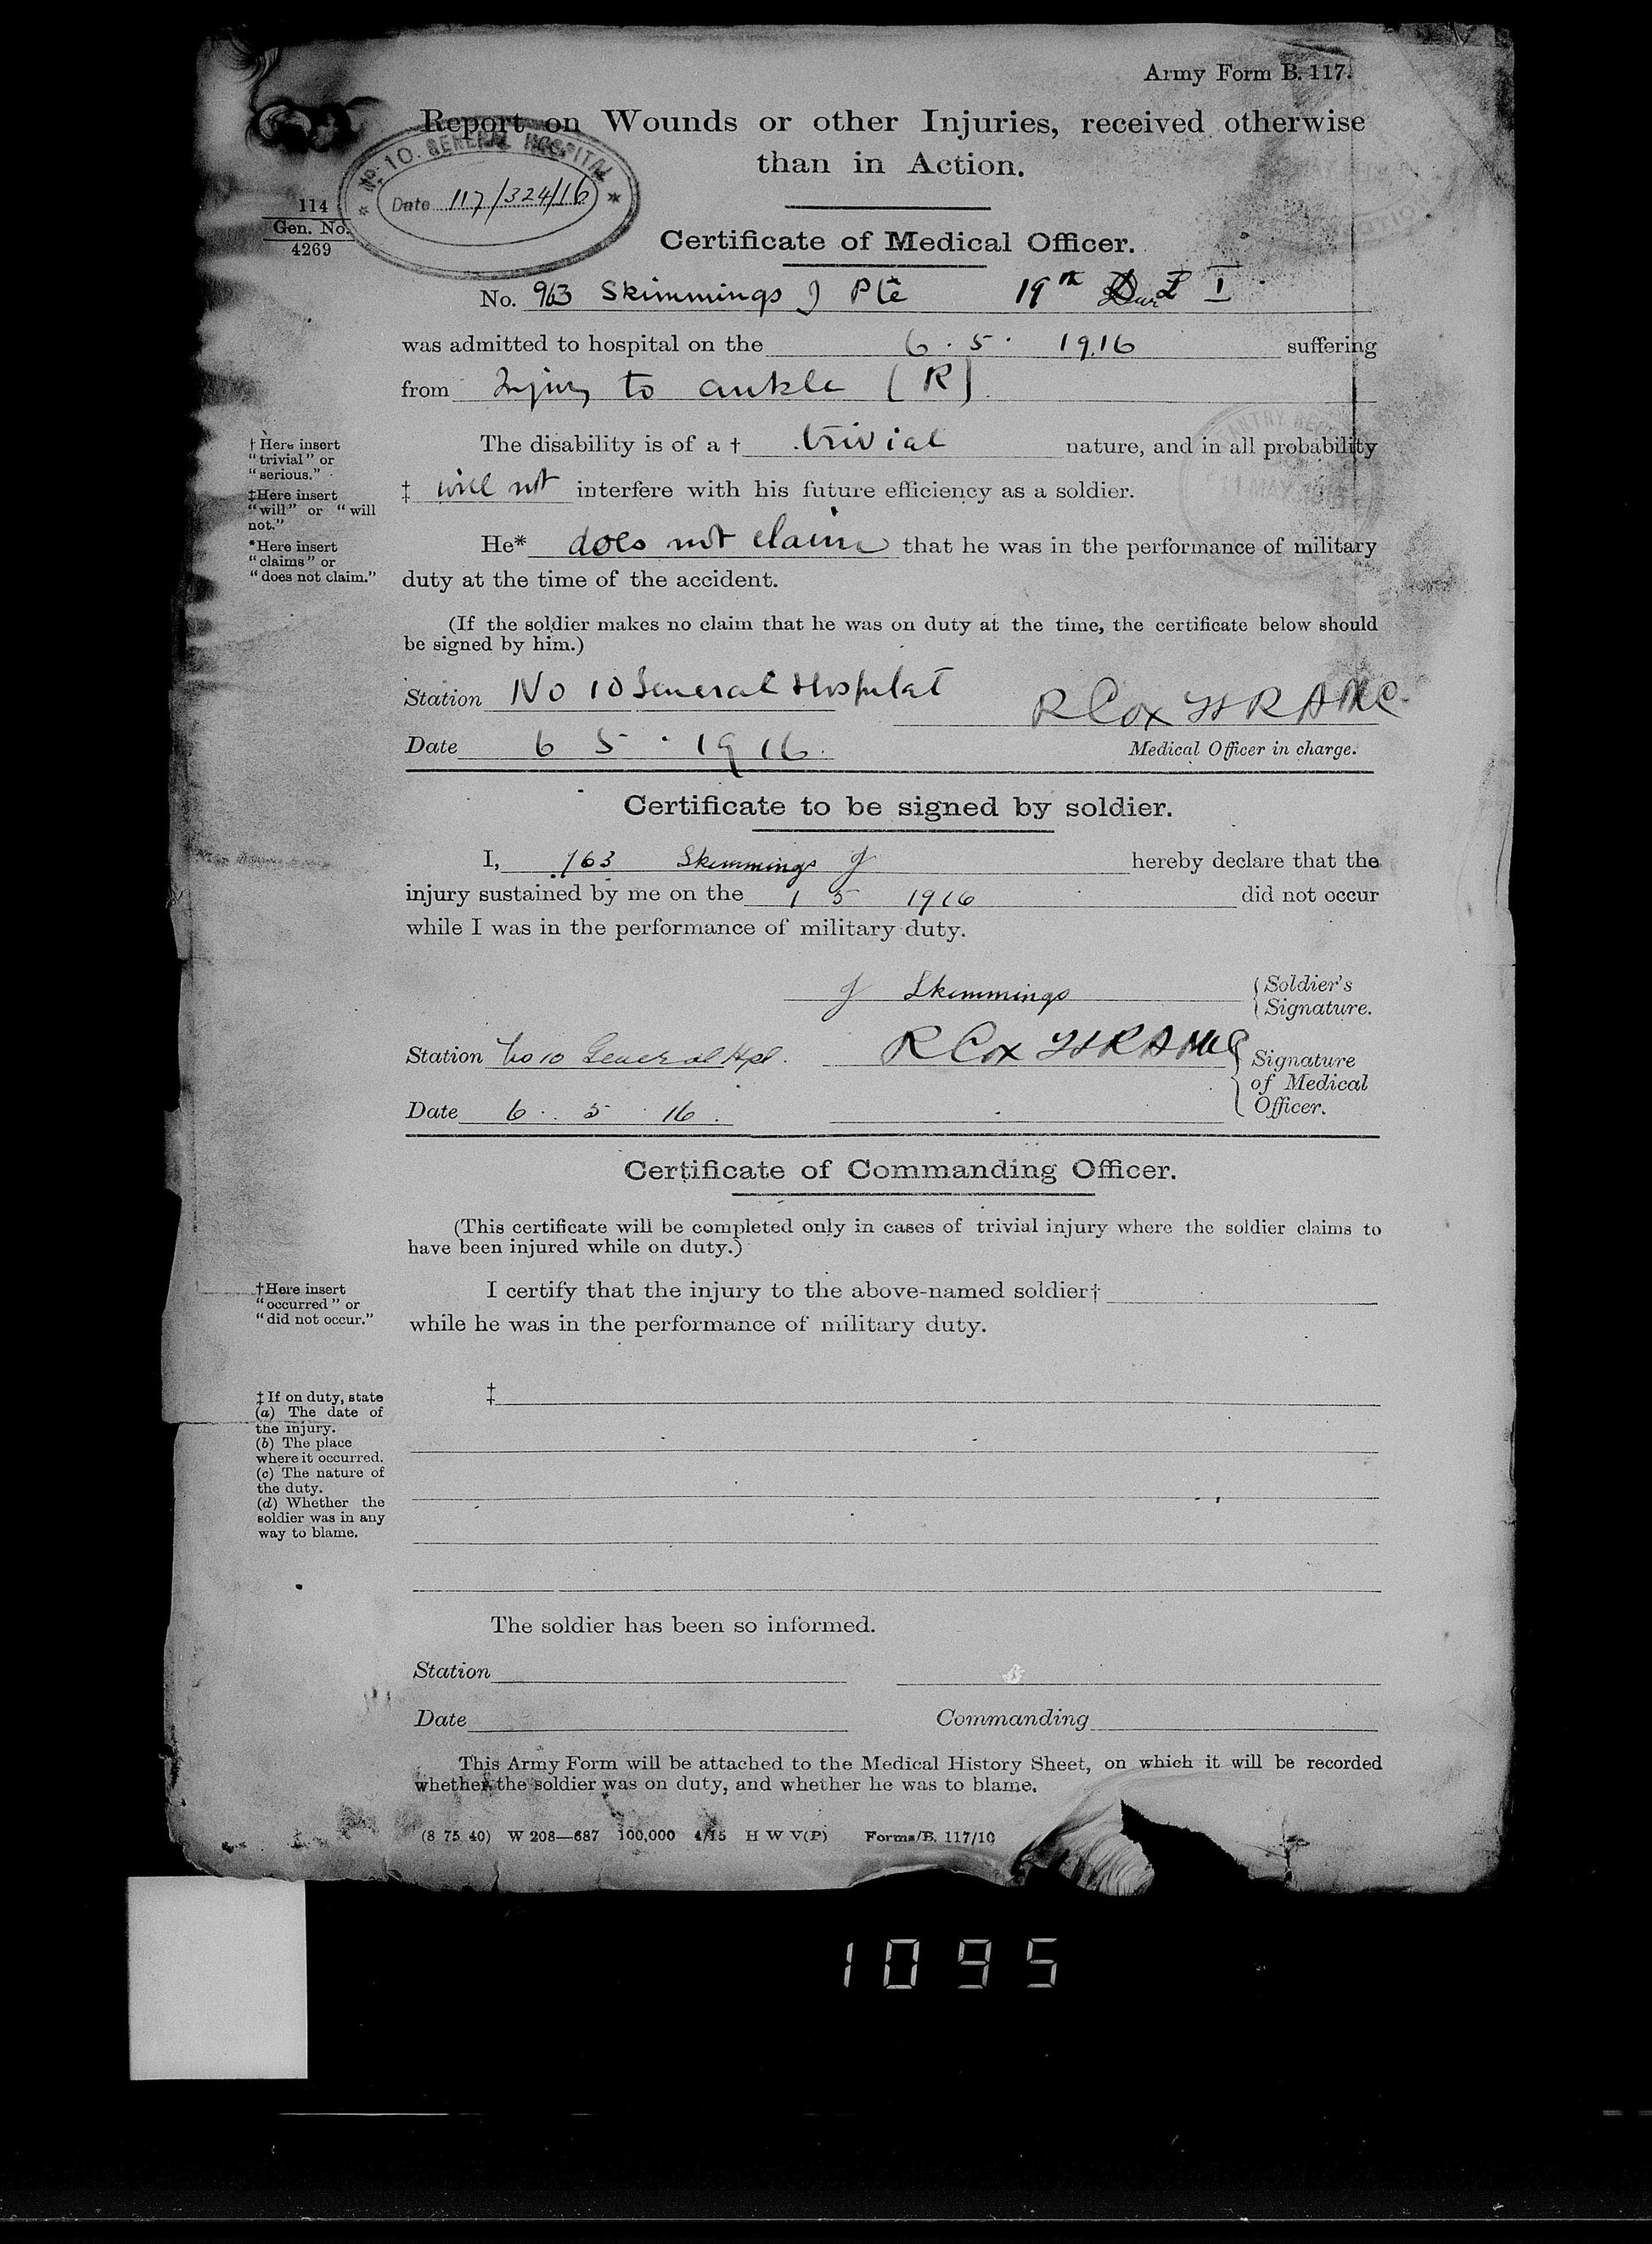 Army Form B. 117.
Report on Wounds or other Injuries, received otherwise
than in Action.
No. 10. GENERAL HOSPITAL
Date 117/324/16
114
Gen. No.
4269
Certificate of Medical Officer.
No. 963 Skimmings J Pte 19th Dur L I
was admitted to hospital on the 6 . 5 . 1916 suffering
from Injury to ankle (R)
† Here insert
"trivial" or
"serious."
The disability is of a † trivial nature, and in all probability
‡Here insert
"will" or "will
not."
‡ will not interfere with his future efficiency as a soldier.
*Here insert
"claims" or
"does not claim."
He* does not claim that he was in the performance of military
duty at the time of the accident.
(If the soldier makes no claim that he was on duty at the time, the certificate below should
be signed by him.)
Station No 10 General Hospital
R Cox Lt RAMC
Date 6 5 . 1916.
Medical Officer in charge.
Certificate to be signed by soldier.
I, 963 Skimmings J hereby declare that the
injury sustained by me on the 1 5 1916 did not occur
while I was in the performance of military duty.
J Skimmings
Soldier's
Signature.
Station No 10 General Hpl.
R Cox Lt RAMC
Signature
of Medical
Officer.
Date 6 . 5 . 16.
Certificate of Commanding Officer.
(This certificate will be completed only in cases of trivial injury where the soldier claims to
have been injured while on duty.)
†Here insert
"occurred" or
"did not occur."
I certify that the injury to the above-named soldier†
while he was in the performance of military duty.
‡
‡ If on duty, state
(a) The date of
the injury.
(b) The place
where it occurred.
(c) The nature of
the duty.
(d) Whether the
soldier was in any
way to blame.
The soldier has been so informed.
Station
Date Commanding
This Army Form will be attached to the Medical History Sheet, on which it will be recorded
whether the soldier was on duty, and whether he was to blame.
(8 75 40) W 208—687 100,000 4/15 H W V(P) Forms/B. 117/10
1095